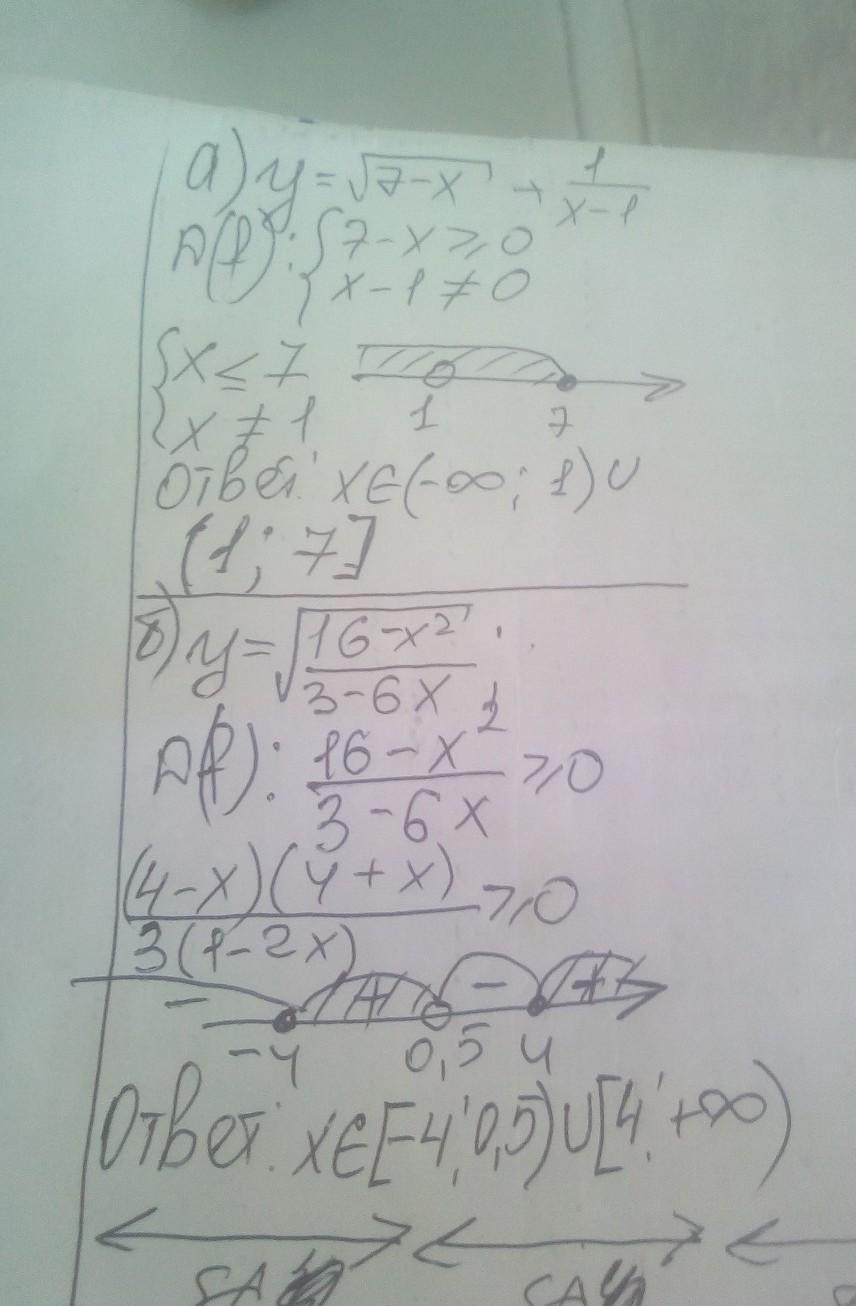 а) y = √7-x + 1/x-1
D(f): { 7-x ≥ 0
x-1 ≠ 0
{ x ≤ 7
x ≠ 1
1 7
Ответ: x∈(-∞; 1)∪
(1; 7]
б) y = √16-x²/3-6x
D(f): 16-x²/3-6x ≥ 0
(4-x)(4+x)/3(1-2x) ≥ 0
- + - +
-4 0,5 4
Ответ: x∈[-4; 0,5)∪[4; +∞)